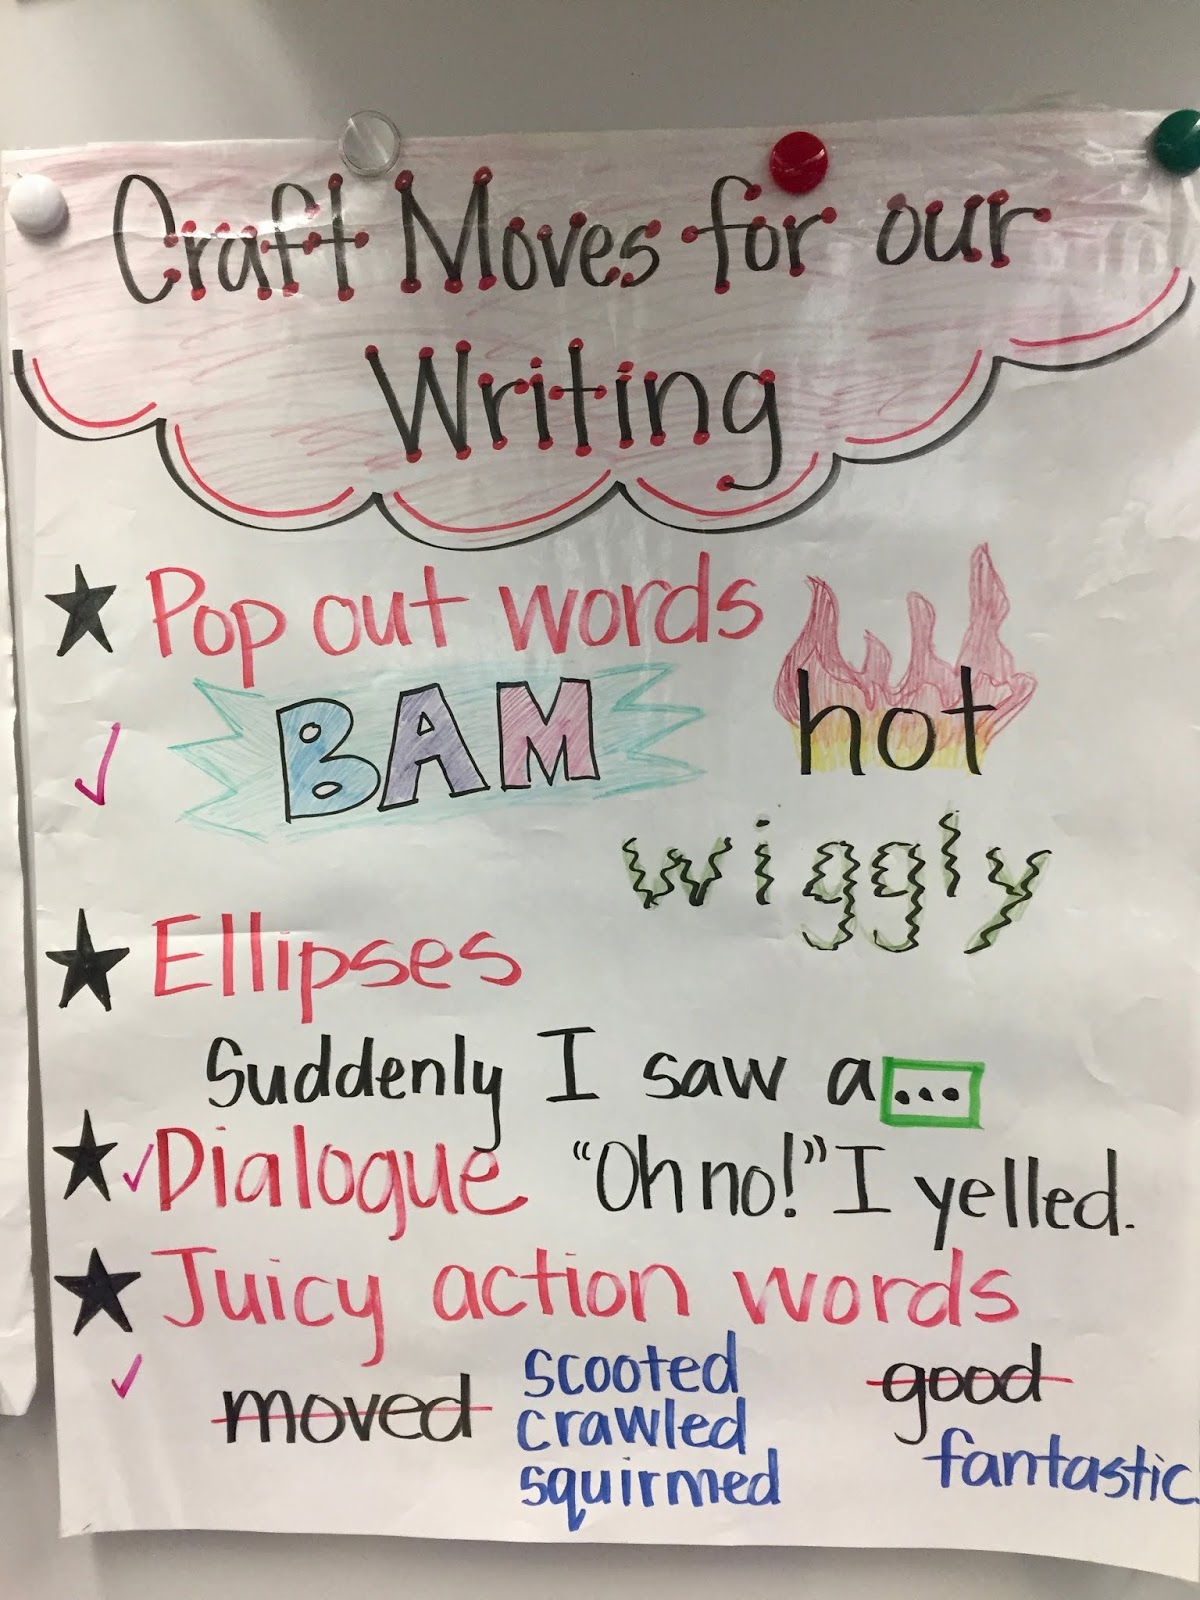 Craft Moves for our
Writing
Pop out words
BAM hot
wiggly
Ellipses
Suddenly I saw a...
Dialogue "Oh no!" I yelled.
Juicy action words
moved scooted good
crawled
squirmed fantastic